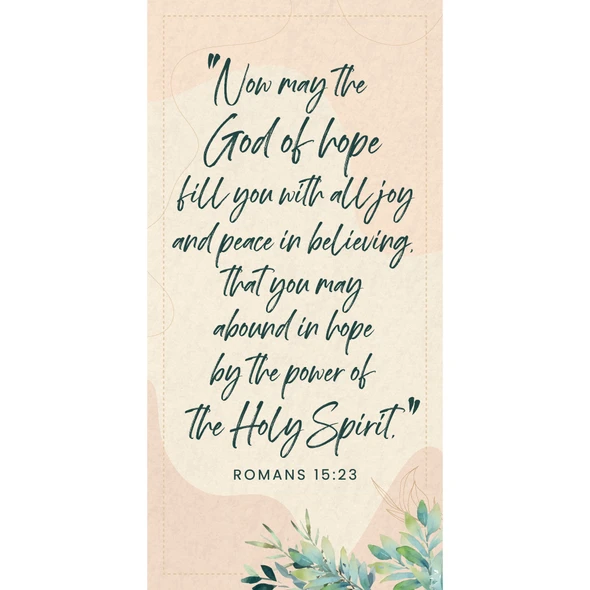 "Now may the
God of hope
fill you with all joy
and peace in believing,
that you may
abound in hope
by the power of
the Holy Spirit."
ROMANS 15:23